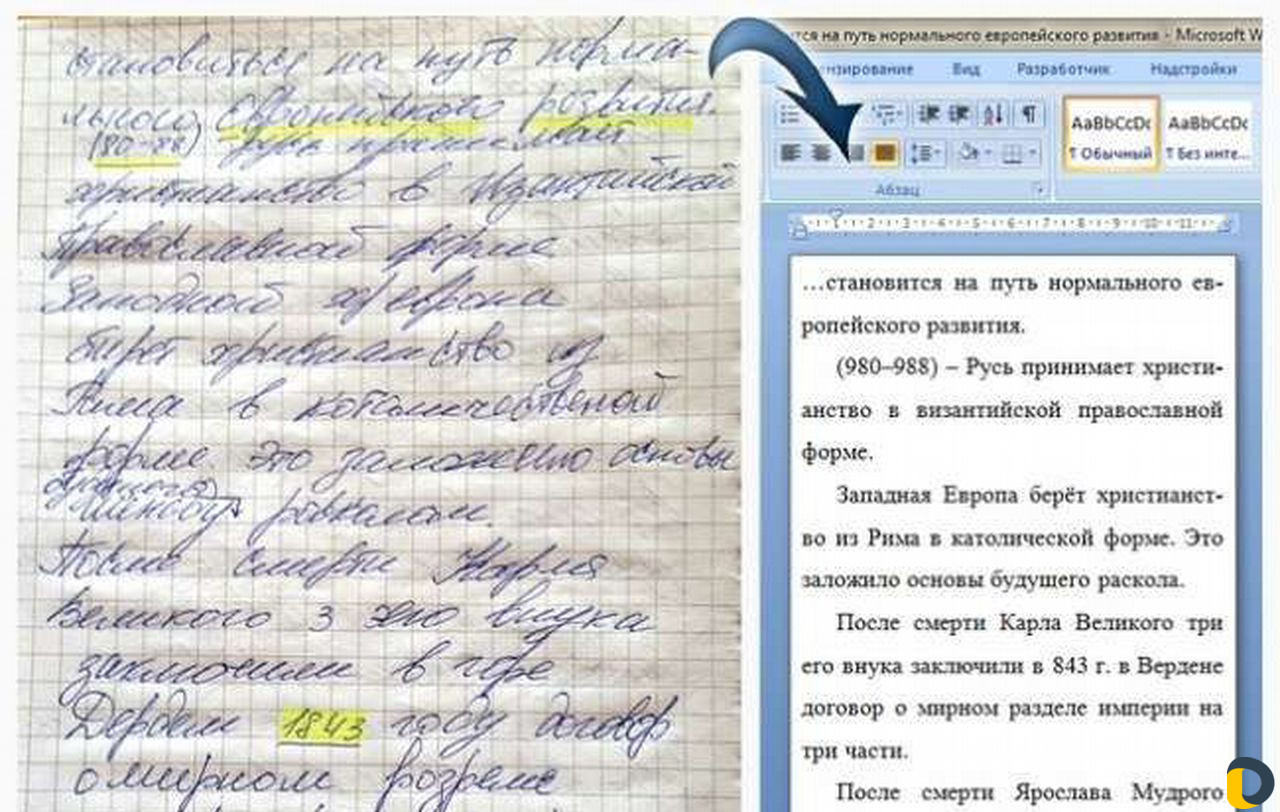 становиться на путь норма-
льного европейского розвития.
(80-88) Русь принимает
христианство в Византийской
Православной форме
Западной европа
берет христианство из
Рима в католичественой
форме. Это заложено основы
расколам.
После смерти Карла
Великого 3 его внука
заключили в горе
Вердем 1843 году договор
о мирном розделе
тся на путь нормального европейского развития - Microsoft W
нзирование Вид Разработчик Надстройки
AaBbCcDc AaBbCcDc
¶ Обычный ¶ Без инте...
Абзац
1 2 3 4 5 6 7 8 9 10 11
…становится на путь нормального ев-
ропейского развития.
(980–988) – Русь принимает христи-
анство в византийской православной
форме.
Западная Европа берёт христианст-
во из Рима в католической форме. Это
заложило основы будущего раскола.
После смерти Карла Великого три
его внука заключили в 843 г. в Вердене
договор о мирном разделе империи на
три части.
После смерти Ярослава Мудрого